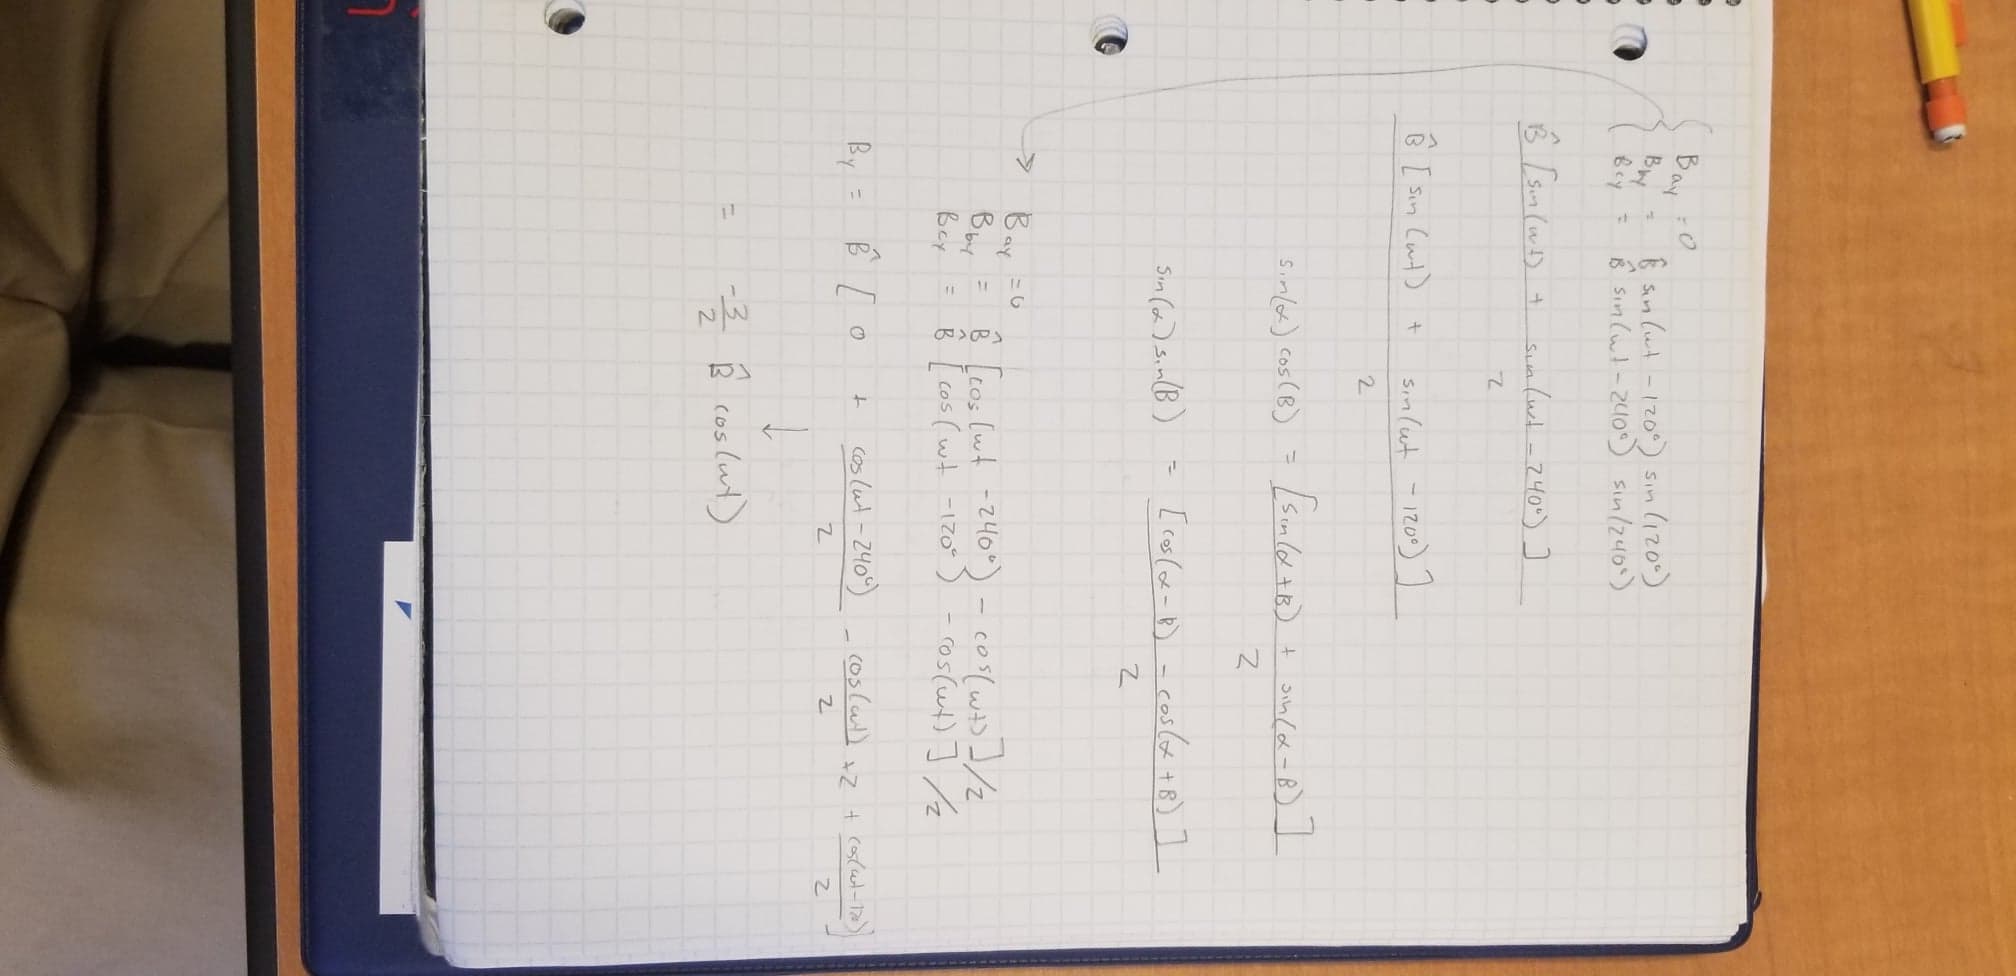 Bay = 0
Bby = B̂ sin(wt - 120°) sin(120°)
Bcy = B̂ sin(wt - 240°) sin(240°)
B̂ [sin(wt) + sin(wt - 240°)]
2
B̂ [sin(wt) + sin(wt - 120°)]
2
sin(α) cos(B) = [sin(α + B) + sin(α - B)]
2
sin(α) sin(B) = [cos(α - B) - cos(α + B)]
2
→ Bay = 0
Bby = B̂ [cos(wt - 240°) - cos(wt)]/2
Bcy = B̂ [cos(wt - 120°) - cos(wt)]/2
By = B̂ [0 + cos(wt - 240°)/2 - cos(wt)/2 *2 + cos(wt - 120)/2]
↓
= -3/2 B̂ cos(wt)